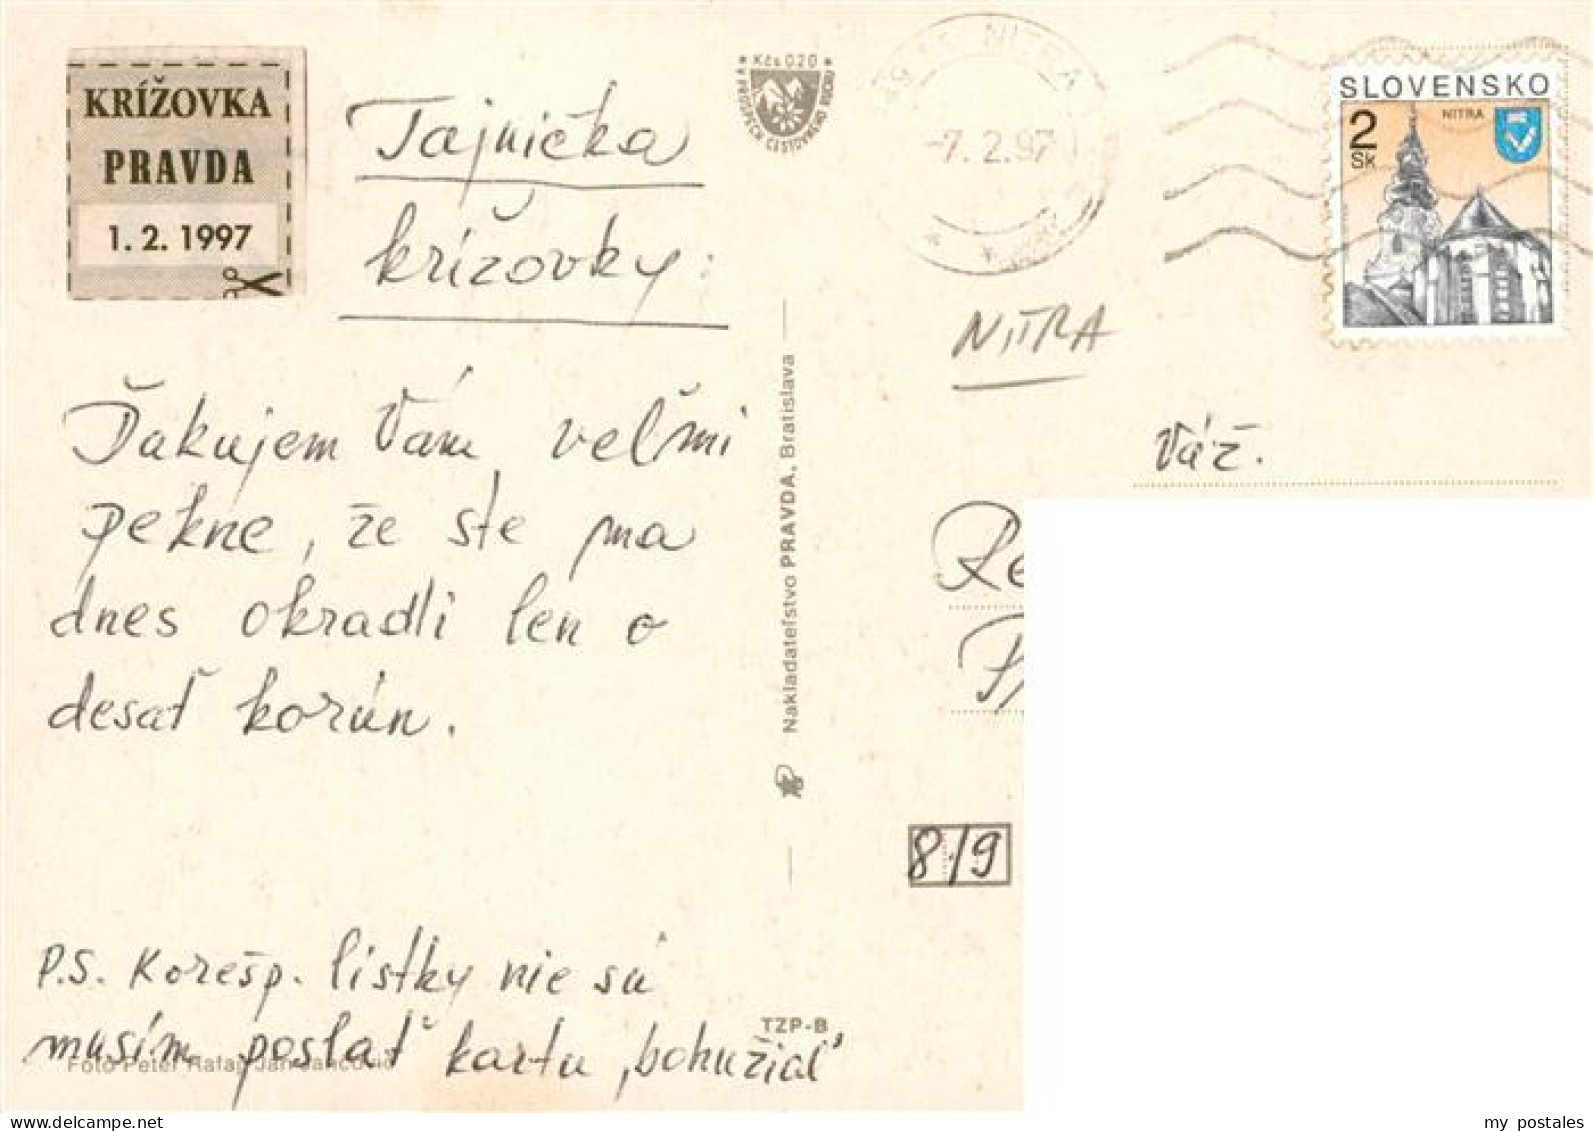 KRÍŽOVKA
PRAVDA
1. 2. 1997
Tajnička
krížovky:
Ďakujem Vám veľmi
pekne, že ste ma
dnes okradli len o
desať korún.
P.S. Korešp. lístky nie sú
musím poslať kartu „bohužiaľ"
Foto Peter Rafaj, Ján Jančovič
TZP-B
* Kčs 0.20 *
V PROSPECH CESTOVNÉHO RUCHU
Nakladateľstvo PRAVDA, Bratislava
NITRA
-7. 2. 97
SLOVENSKO
NITRA
2
Sk
NITRA
Váž.
Re
8/9
my postales